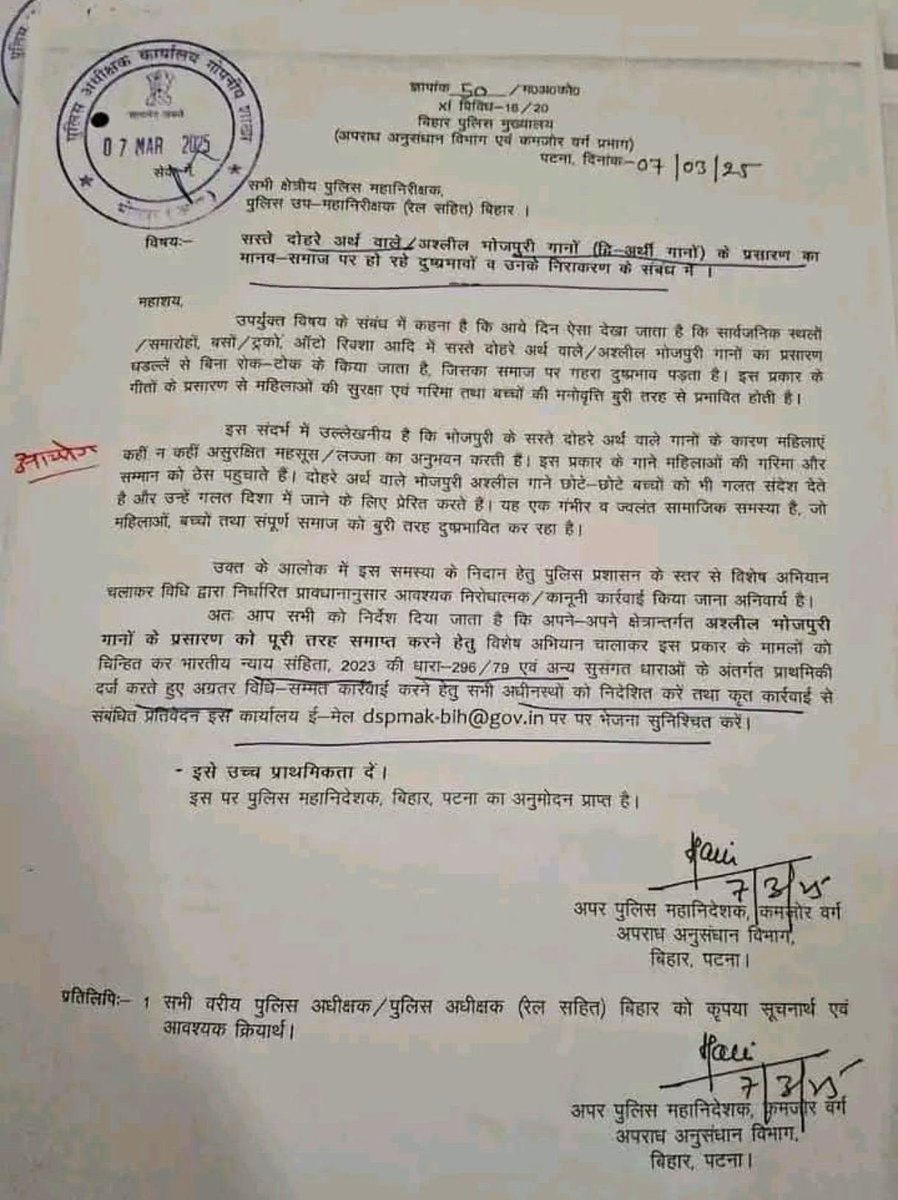 पुलिस अधीक्षक कार्यालय गोपनीय शाखा
सत्यमेव जयते
07 MAR 2025
ज्ञापांक 50 /म0अ0को0
XI विविध-16/20
बिहार पुलिस मुख्यालय
(अपराध अनुसंधान विभाग एवं कमजोर वर्ग प्रभाग)
पटना, दिनांक:-07/03/25
सेवा में,
सभी क्षेत्रीय पुलिस महानिरीक्षक,
पुलिस उप-महानिरीक्षक (रेल सहित) बिहार ।
विषय:- सस्ते दोहरे अर्थ वाले/अश्लील भोजपुरी गानों (द्वि-अर्थी गानों) के प्रसारण का
मानव-समाज पर हो रहे दुष्प्रभावों व उनके निराकरण के संबंध में ।
महाशय,
उपर्युक्त विषय के संबंध में कहना है कि आये दिन ऐसा देखा जाता है कि सार्वजनिक स्थलों
/समारोहों, बसों/ट्रकों, ऑटो रिक्शा आदि में सस्ते दोहरे अर्थ वाले/अश्लील भोजपुरी गानों का प्रसारण
धडल्लें से बिना रोक-टोक के किया जाता है, जिसका समाज पर गहरा दुष्प्रभाव पड़ता है। इस प्रकार के
गीतों के प्रसारण से महिलाओं की सुरक्षा एवं गरिमा तथा बच्चों की मनोवृत्ति बुरी तरह से प्रभावित होती है।
इस संदर्भ में उल्लेखनीय है कि भोजपुरी के सस्ते दोहरे अर्थ वाले गानों के कारण महिलाएं
कहीं न कहीं असुरक्षित महसूस/लज्जा का अनुभवन करती हैं। इस प्रकार के गाने महिलाओं की गरिमा और
सम्मान को ठेस पहुचाते हैं। दोहरे अर्थ वाले भोजपुरी अश्लील गाने छोटे-छोटे बच्चों को भी गलत संदेश देते
है और उन्हें गलत दिशा में जाने के लिए प्रेरित करते हैं। यह एक गंभीर व ज्वलंत सामाजिक समस्या है, जो
महिलाओं, बच्चों तथा संपूर्ण समाज को बुरी तरह दुष्प्रभावित कर रहा है।
उक्त के आलोक में इस समस्या के निदान हेतु पुलिस प्रशासन के स्तर से विशेष अभियान
चलाकर विधि द्वारा निर्धारित प्रावधानानुसार आवश्यक निरोधात्मक/कानूनी कार्रवाई किया जाना अनिवार्य है।
अतः आप सभी को निर्देश दिया जाता है कि अपने-अपने क्षेत्रान्तर्गत अश्लील भोजपुरी
गानों के प्रसारण को पूरी तरह समाप्त करने हेतु विशेष अभियान चालाकर इस प्रकार के मामलों को
चिन्हित कर भारतीय न्याय संहिता, 2023 की धारा-296/79 एवं अन्य सुसंगत धाराओं के अंतर्गत प्राथमिकी
दर्ज करते हुए अग्रतर विधि-सम्मत कार्रवाई करने हेतु सभी अधीनस्थों को निदेशित करें तथा कृत कार्रवाई से
संबंधित प्रतिवेदन इस कार्यालय ई-मेल dspmak-bih@gov.in पर पर भेजना सुनिश्चित करें।
- इसे उच्च प्राथमिकता दें।
इस पर पुलिस महानिदेशक, बिहार, पटना का अनुमोदन प्राप्त है।
7/3/25
अपर पुलिस महानिदेशक, कमजोर वर्ग
अपराध अनुसंधान विभाग,
बिहार, पटना।
प्रतिलिपिः- 1 सभी वरीय पुलिस अधीक्षक/पुलिस अधीक्षक (रेल सहित) बिहार को कृपया सूचनार्थ एवं
आवश्यक क्रियार्थ।
7/3/25
अपर पुलिस महानिदेशक, कमजोर वर्ग
अपराध अनुसंधान विभाग,
बिहार, पटना।